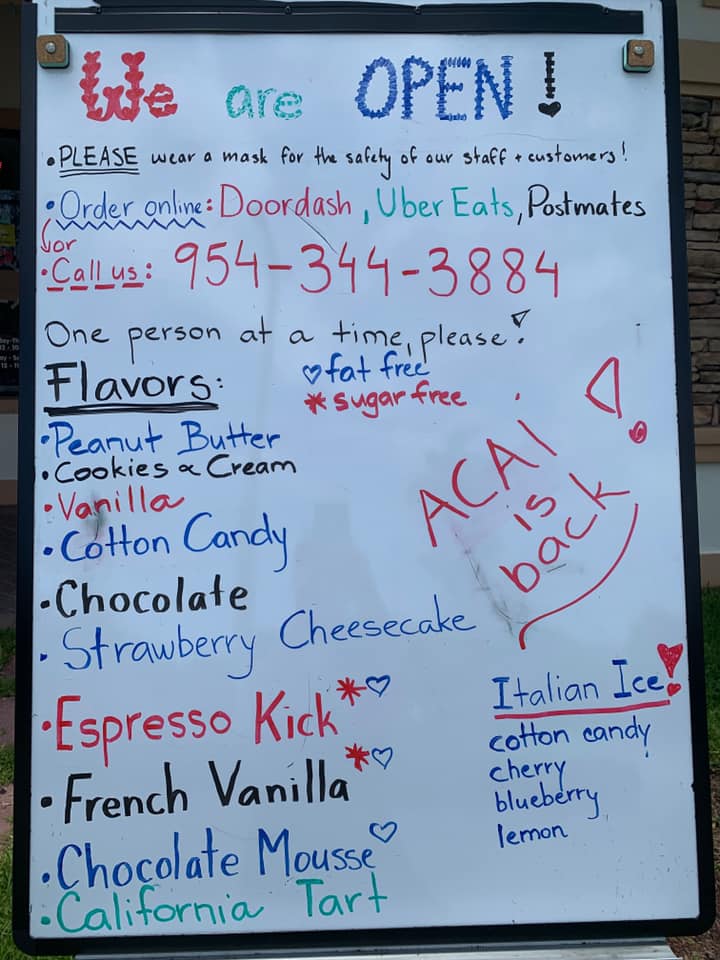 We are OPEN!
• PLEASE wear a mask for the safety of our staff + customers!
• Order online: Doordash, Uber Eats, Postmates
or
• Call us: 954-344-3884
One person at a time, please!
Flavors:
♡ fat free
* sugar free
• Peanut Butter
• Cookies & Cream
• Vanilla
• Cotton Candy
• Chocolate
• Strawberry Cheesecake
• Espresso Kick *♡
• French Vanilla *♡
• Chocolate Mousse ♡
• California Tart
ACAI
is
back!
Italian Ice!
cotton candy
cherry
blueberry
lemon